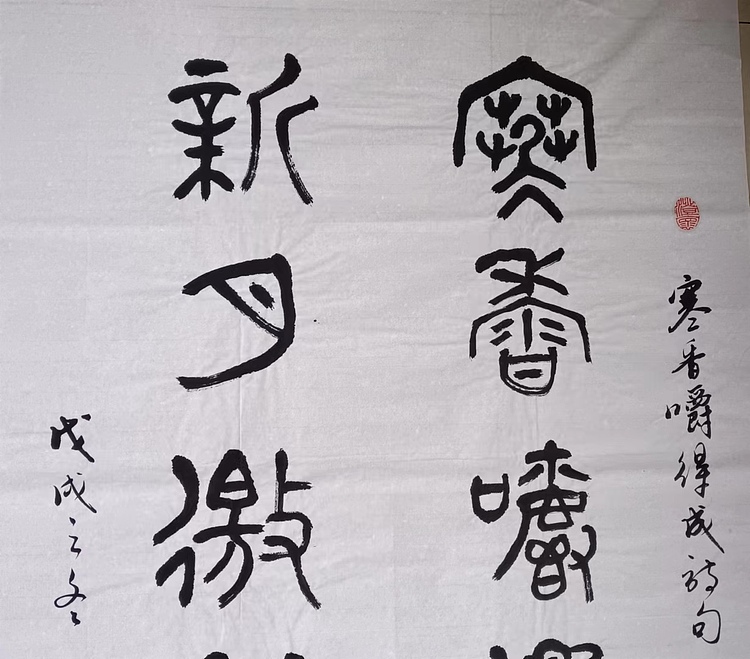 寒香嚼得成詩句
寒香嚼
新月徼
戊戌之冬